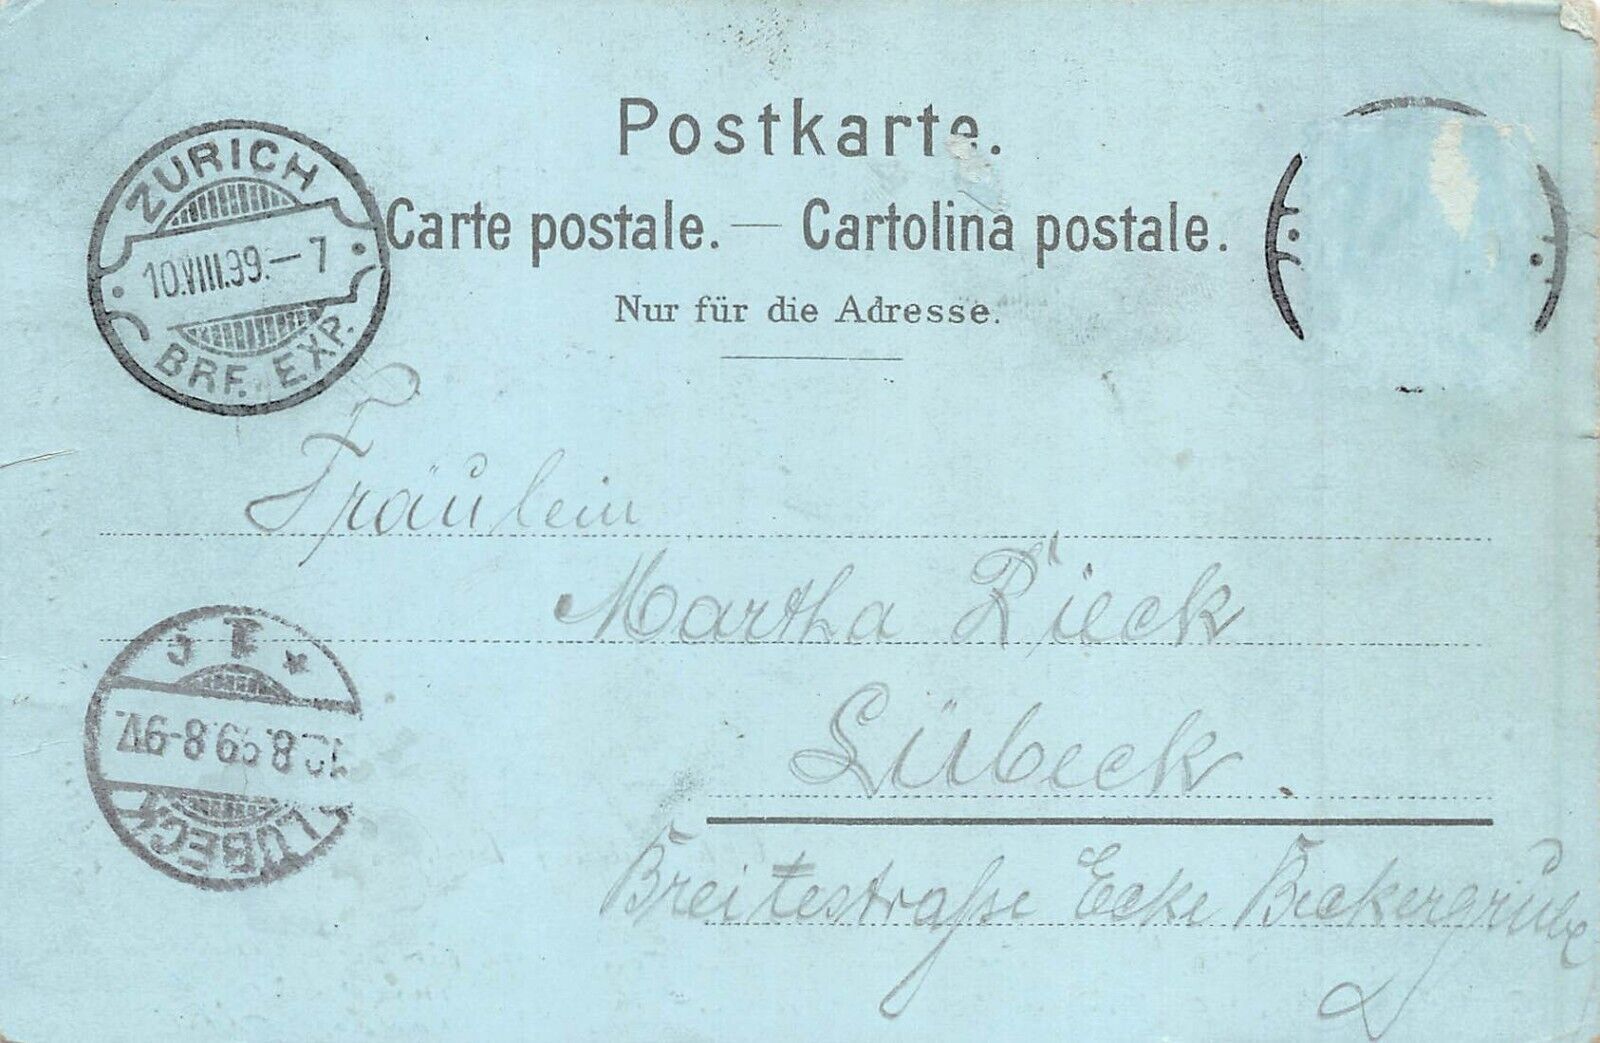 Postkarte.
Carte postale. — Cartolina postale.
Nur für die Adresse.
ZURICH
10.VIII.99.–7
BRF. EXP.
Fräulein
Martha Rieck
Lübeck.
Breitestraße Ecke Beckergrube
LÜBECK
8.99.8-9V.